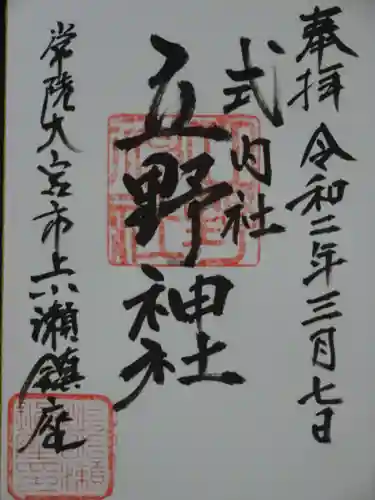 奉拝 令和二年三月七日
式内社
立野神社
常陸大宮市上小瀬鎮座